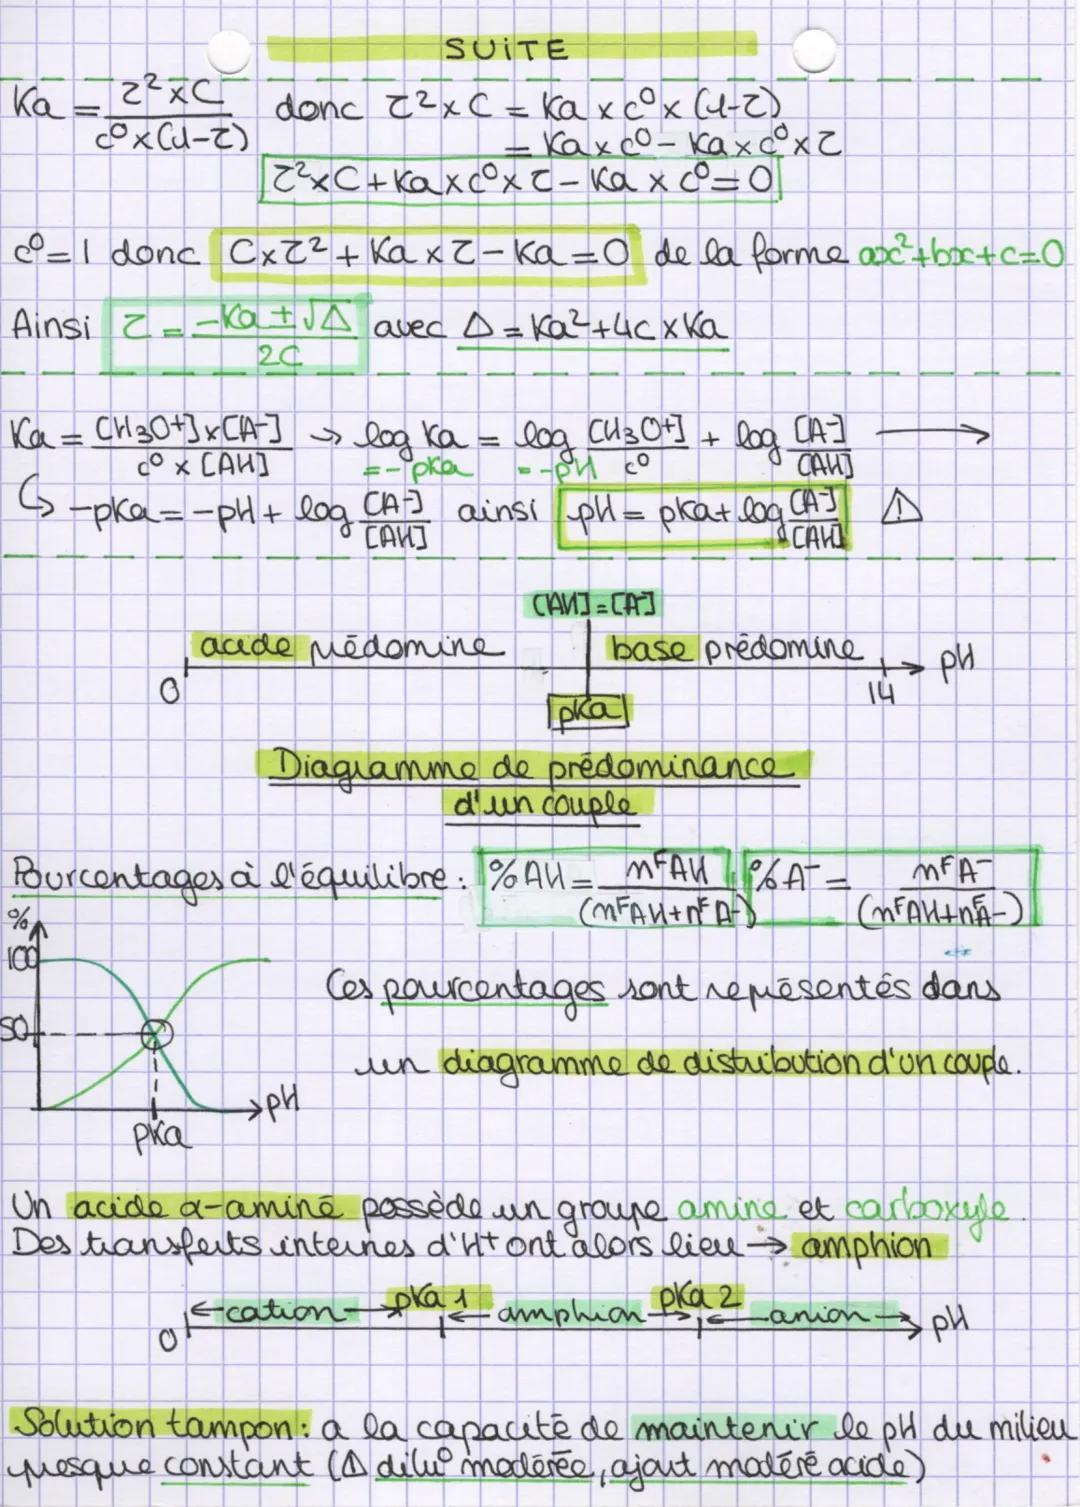 SUITE
Ka = τ²×C / c⁰×(1-τ) donc τ²×C = Ka × c⁰ × (1-τ)
= Ka×c⁰ - Ka×c⁰×τ
τ²×C + Ka×c⁰×τ - Ka×c⁰ = 0
c⁰ = 1 donc C×τ² + Ka×τ - Ka = 0 de la forme ax²+bx+c=0
Ainsi τ = -Ka ± √Δ / 2C avec Δ = Ka² + 4C × Ka
Ka = [H3O+]×[A-] / c⁰ × [AH] → log Ka = log [H3O+] / c⁰ + log [A-] / [AH] →
= -pKa = -pH
↳ -pKa = -pH + log [A-] / [AH] ainsi pH = pKa + log [A-] / [AH] ⚠
[AH] = [A-]
acide prédomine base prédomine pH
0 14
pKa
Diagramme de prédominance
d'un couple
Pourcentages à l'équilibre : %AH = nᶠAH / (nᶠAH + nᶠA-) , %A- = nᶠA- / (nᶠAH + nᶠA-)
%
100
Ces pourcentages sont représentés dans
50
un diagramme de distribution d'un couple.
pH
pKa
Un acide α-aminé possède un groupe amine et carboxyle.
Des transferts internes d'H+ ont alors lieu → amphion
← cation → pKa 1 ← amphion → pKa 2 ← anion → pH
0
Solution tampon : a la capacité de maintenir le pH du milieu
presque constant (Δ dilu⁰ modérée, ajout modéré acide)